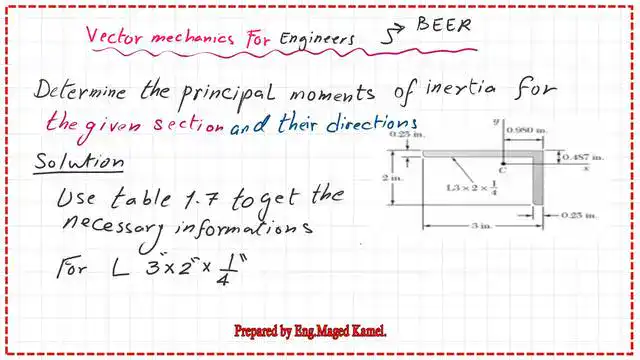 Vector mechanics For Engineers → BEER
Determine the principal moments of inertia for
the given section and their directions
Solution
Use table 1.7 to get the
necessary informations
For L 3" x 2" x 1/4"
y
0.980 in.
0.25 in.
0.487 in.
x
C
2 in.
L3 × 2 × 1/4
0.25 in.
3 in.
Prepared by Eng.Maged Kamel.